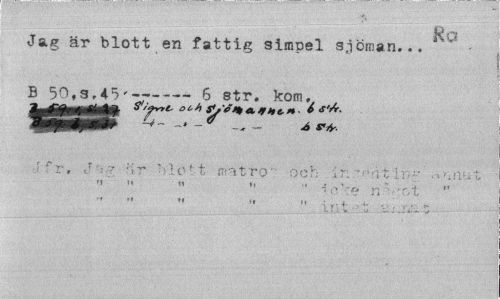 Ra
Jag är blott en fattig simpel sjöman...
B 50,s.45.------ 6 str. kom.
Signe och sjömannen. 6 str.
-"- -"- -"- 6 str.
Jfr. Jag är blott matros och ingenting annat
" " " " " icke något "
" " " " " intet annat